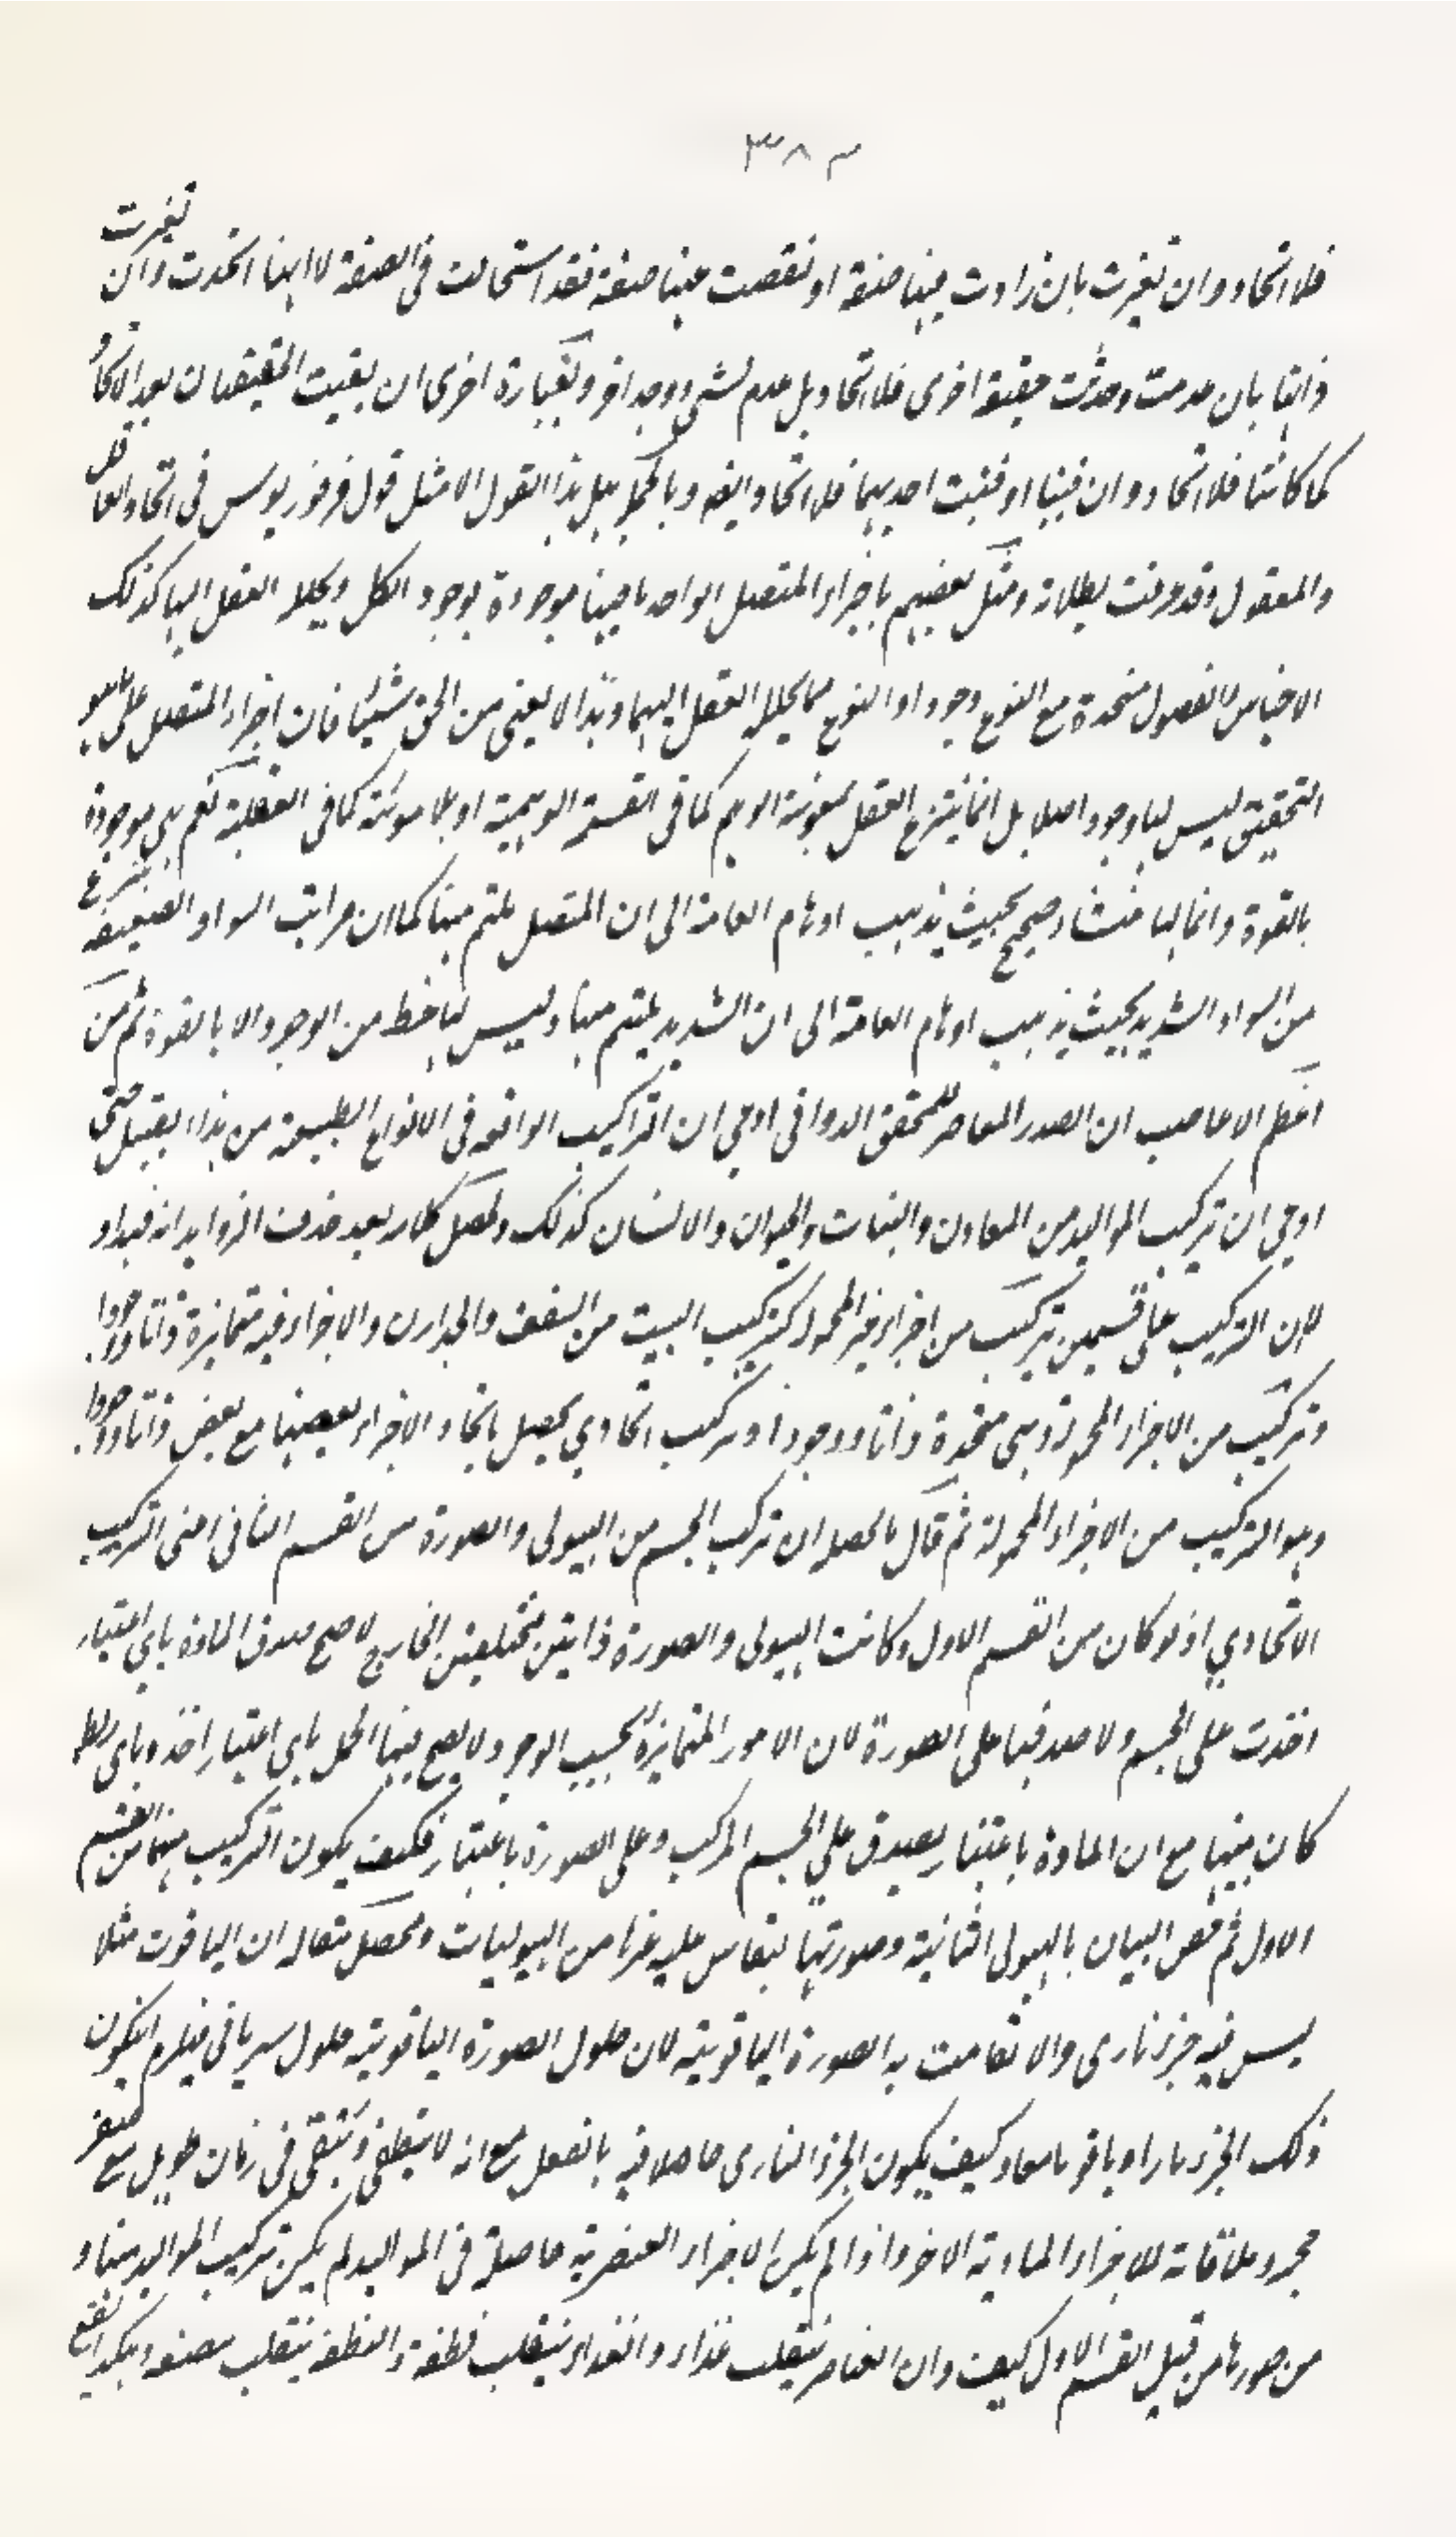 ٣٨٢
فلا اتحاد وان تغيرت بان زادت فيها صفة او نقصت عنها صفة فقد استحالت فى الصفة لا انها اتحدت وان تغيرت
ذاتها بان عدمت وحدثت حقيقة اخرى فلا اتحاد بل عدم لشىء ووجد اخر وبعبارة اخرى ان بقيت الحقيقتان بعد الاتحاد
كما كانتا فلا اتحاد وان فنيتا او فنيت احديهما فلا اتحاد ايضا وبالجملة هل هذا القول الا مثل قول فرفوريوس فى اتحاد العاقل
والمعقول وقد عرفت بطلانه ومثل بعضهم باجزاء المتصل الواحد بانها موجودة بوجود الكل ويحلل العقل اليها كذلك
الاجناس والفصول متحدة مع النوع وجودا والنوع مما يحلله العقل اليهما وهذا لا يغنى من الحق شيئا فان اجزاء المتصل على ما هو
التحقيق ليس لها وجود اصلا بل انما ينتزع العقل بمعونة الوهم كما فى القسمة الوهمية او بلا معونته كما فى العقلية نعم هى موجودة
بالقوة وانما لها منشاء صحيح بحيث يذهب اوهام العامة الى ان المتصل ملتئم منها كما ان مراتب السواد الضعيفة ينتزع
من السواد الشديد بحيث يذهب اوهام العامة الى ان الشديد ملتئم منها وليس لها حظ من الوجود الا بالقوة ثم من
اعظم الاعاجيب ان الصدر المعاصر للمحقق الدوانى ادعى ان التراكيب الواقعة فى الانواع الطبيعية من هذا القبيل حتى
ادعى ان تركيب المواليد من المعادن والنبات والحيوان والانسان كذلك ومحصل كلامه بعد حذف الزوايد انه قد ابداء
لان التركيب على قسمين تركيب من اجزاء غير المحمولة كتركيب البيت من السقف والجدارن والاجزاء فيه متمايزة ذاتا ووجودا
وتركيب من الاجزاء المحمولة وهى متحدة ذاتا ووجودا وتركيب اتحادي يحصل باتحاد الاجزاء بعضها مع بعض ذاتا ووجودا
وهو التركيب من الاجزاء المحمولة ثم قال ما محصله ان تركب الجسم من الهيولى والصورة من القسم الثانى اعنى التركيب
الاتحادي اذ لو كان من القسم الاول وكانت الهيولى والصورة ذاتين مختلفتين فى الخارج لا صح صدق المادة باي اعتبار
اخذت على الجسم ولا صدقها على الصورة لان الامور المتمايزة بحسب الوجود لا يصح بينها الحمل باي اعتبار اخذ وباي ربط
كان بينها مع ان المادة باعتبار يصدق على الجسم المركب وعلى الصورة باعتبار فكيف يكون التركيب منهما من القسم
الاول ثم خص البيان بالهيولى الثانية وصورتها ليقاس عليه غيرها من الهيوليات ومحصل مقاله ان الياقوت مثلا
ليس فيه جزء نارى والا لقامت به الصورة الياقوتية لان حلول الصورة الياقوتية حلول سريانى فيلزم ان يكون
ذلك الجزء نارا وياقوتا معا وكيف يكون الجزء النارى حاصلا فيه بالفعل مع انه لا ينطفى ويبقى فى زمان طويل مع صغر
مجرد ملاقاته للاجزاء الماوية الاخر واذا لم يكن الاجزاء العنصرية حاصلة فى المواليد لم يكن تركيب المواليد منها و
من صورها من قبيل القسم الاول كيف وان العناصر ينقلب غذاء والغذاء ينقلب نطفة والنطفة ينقلب مضغة وهكذا